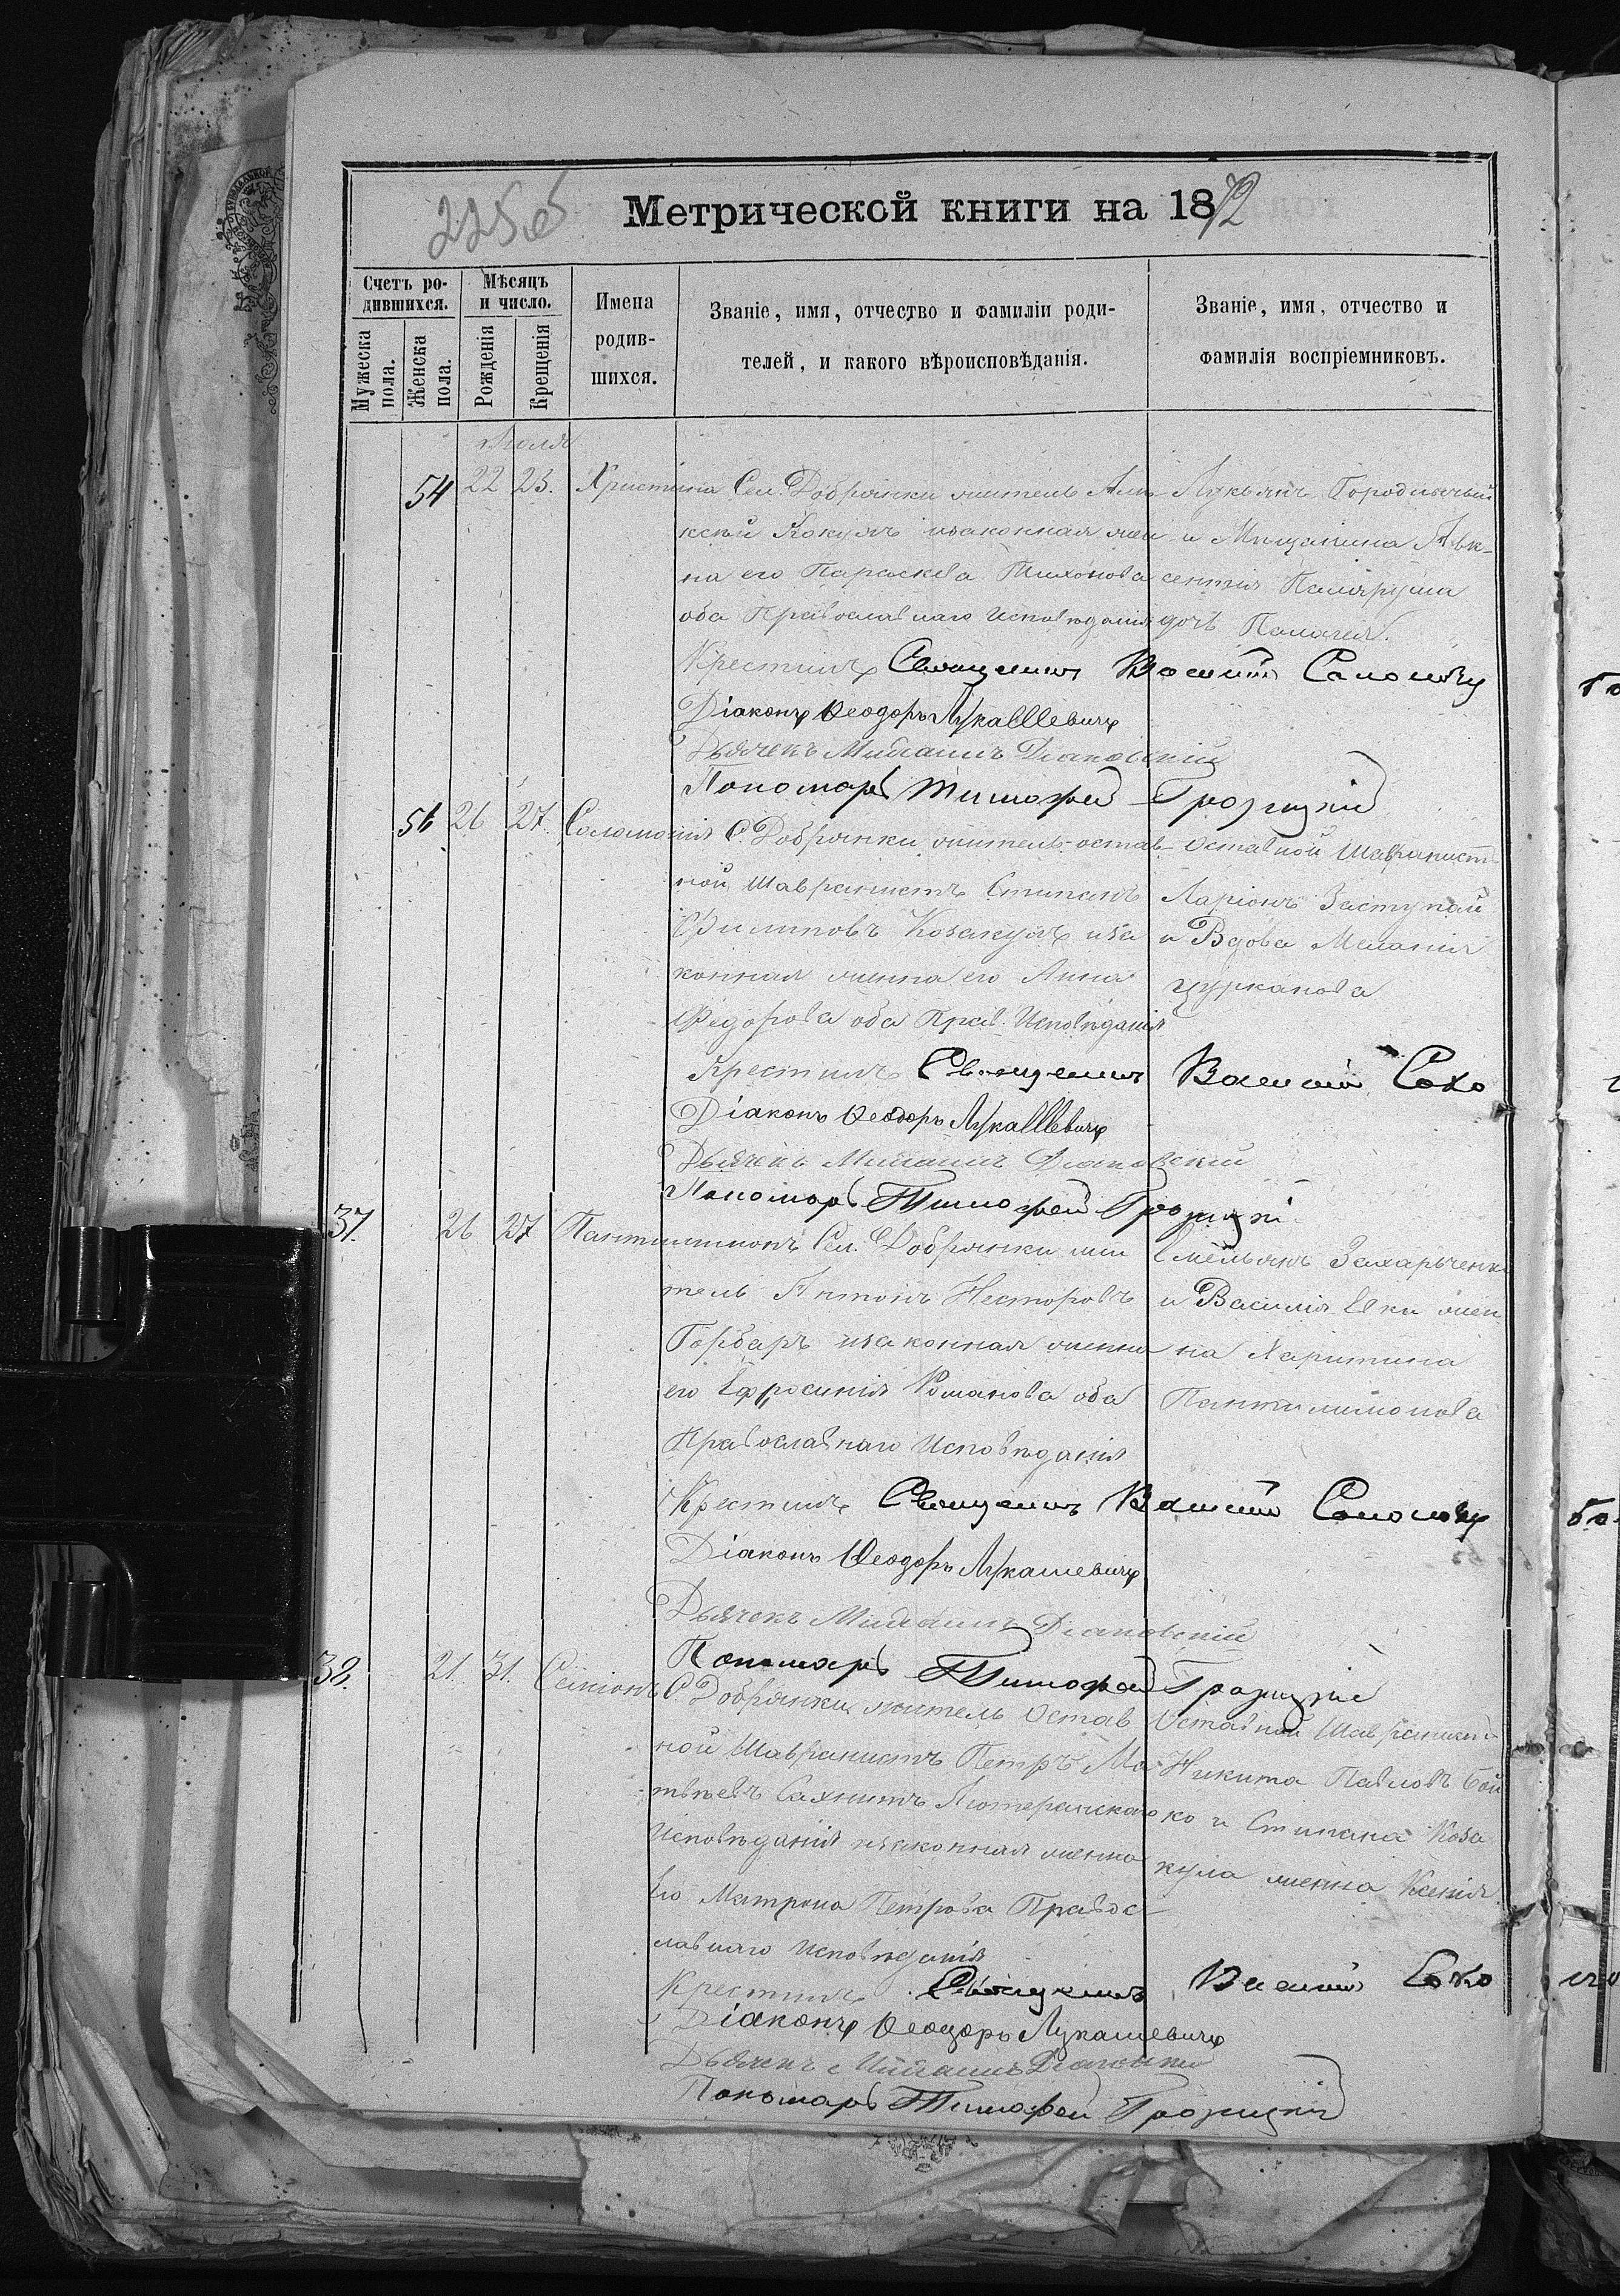 225об
Метрической книги на 1872
Счетъ ро-
дившихся.
Мѣсяцъ
и число.
Мужеска
пола.
Женска
пола.
Рожденія
Крещенія
Имена
родив-
шихся.
Званіе, имя, отчество и фамиліи роди-
телей, и какого вѣроисповѣданія.
Званіе, имя, отчество и
фамилія воспріемниковъ.
Іюля
54 22 23. Христина Сел. Добрянки житель Але-
ксѣй Кокулъ изаконная жен
на его Параскева Тихонова
оба Православнаго Исповѣданія
Лукьянъ
и Мещанина Авк-
сентія
дочь Пелагея.
Крестилъ Священникъ Василій
Діаконъ Ѳеодоръ Лукашевичъ
Дьячекъ Михаилъ
Пономарь Тимофей Грозицкій
56 26 27. Соломонія С. Добрянки житель отстав-
ной Шавранистъ Стипанъ
Филиповъ Козакулъ иза
конная жинна его Анна
Федорова оба Прав. Исповѣданія
Отставной Шавранистъ
Ларіонъ Заступай
и Вдова Меланія
Цурканова
Крестилъ Священникъ Василій Соко
Діаконъ Ѳеодоръ Лукашевичъ
Дьячекъ Михаилъ
Пономарь Тимофей Грозицкій
37. 26 27 Пантилимонъ Сел. Добрянки жи
тель Антонъ Несторовъ
Горбаръ изаконная жинна
его Ефросинія Романова оба
Православнаго Исповѣданія
Емельянъ Захарченко
и Василія жен
на Харитина
Пантилимонова
Крестилъ Священникъ Василій
Діаконъ Ѳеодоръ Лукашевичъ
Дьячекъ Михаилъ
Пономарь Тимофей Грозицкій
38. 21. 31. С. Добрянки житель Отстав
ной Шавранистъ Петръ Ма
твѣевъ Лютеранскаго
Исповѣданія изаконная жинна
Его Матрона Петрова Правос
лавнаго Исповѣданія
Отставной Шавранистъ
Никита Павловъ Бой
ко и Стипана Коза
кула жинна Ксенія
Крестилъ Священникъ Василій Соко
Діаконъ Ѳеодоръ Лукашевичъ
Дьячекъ Михаилъ
Пономарь Тимофей Грозицкій